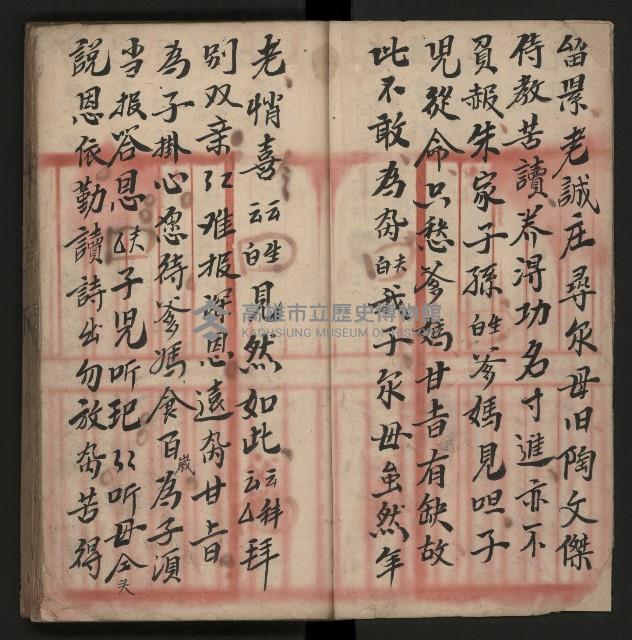 留景老誠庄尋尔母旧陶文傑
侍教苦讀养淂功名寸進亦不
負赧朱家子孫生白爹媽見呾子
児從命只愁爹媽甘旨有缺故
此不敢為夫白我子尔母虽然年
老悄喜云云生白見然如此云云科拜
别双亲江难报深恩遠甘旨
為子掛心愿待爹媽食百歲為子須
当报答恩夫子児听玘江听母仝夫
說恩依勤讀詩出勿放苦得
高雄市立歷史博物館
KAOHSIUNG MUSEUM OF HISTORY